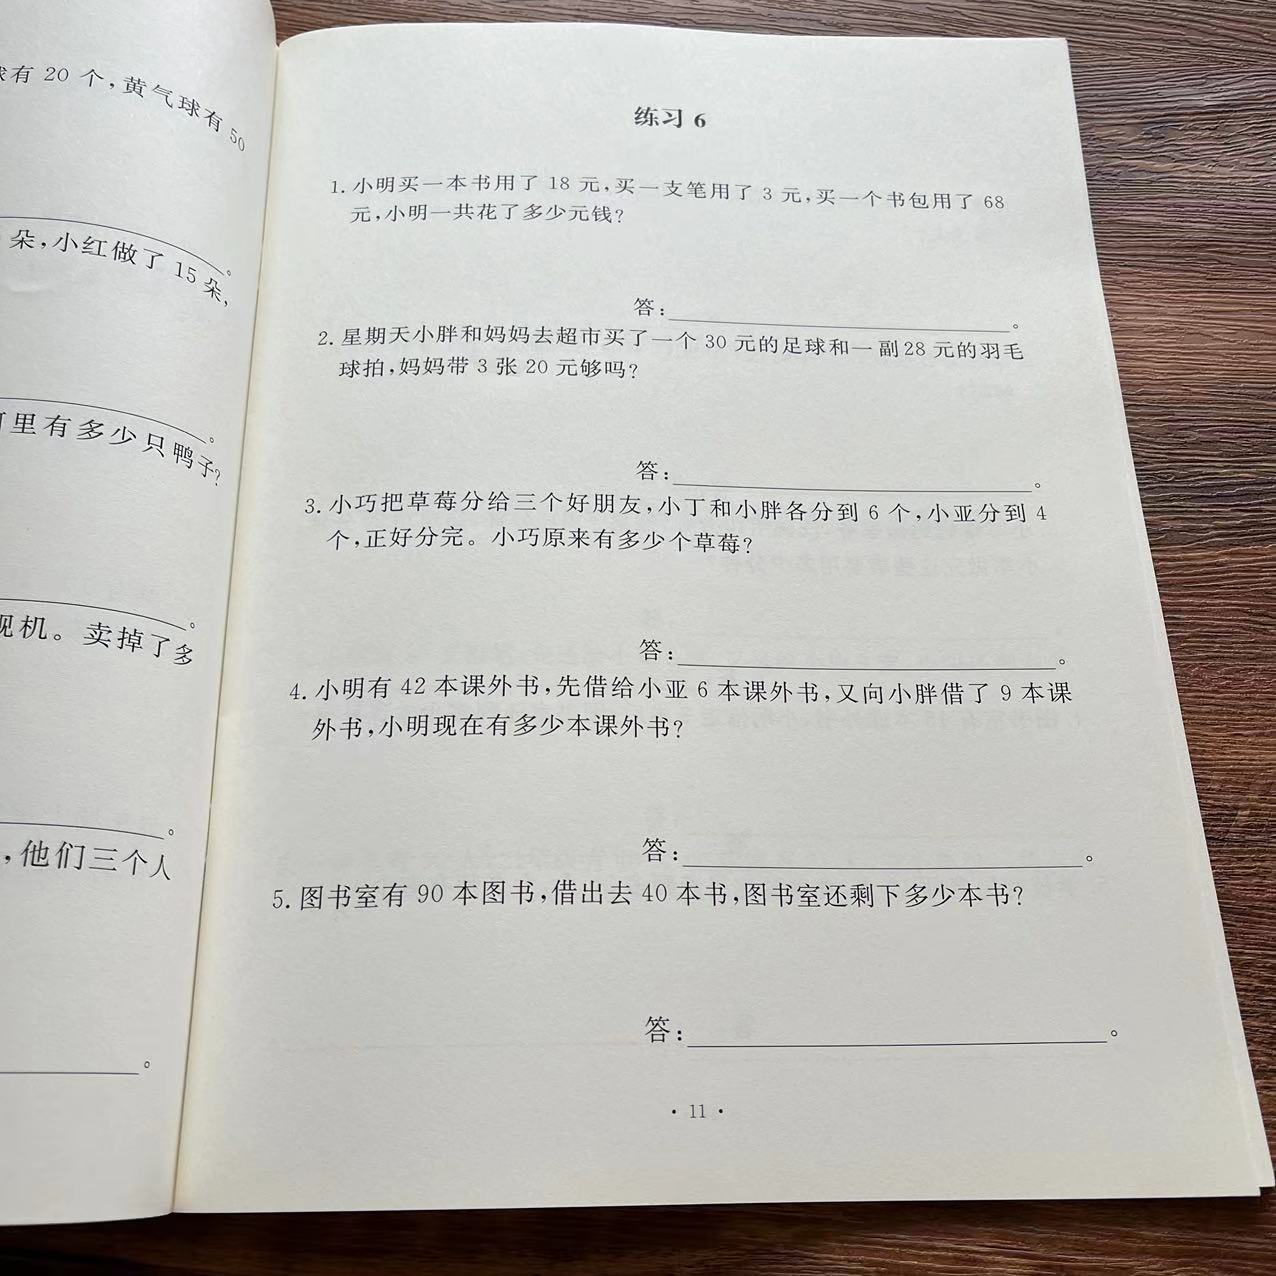 有 20 个，黄气球有 50
朵，小红做了 15 朵，
里有多少只鸭子？
机。卖掉了多
，他们三个人
练习 6
1. 小明买一本书用了 18 元，买一支笔用了 3 元，买一个书包用了 68
元，小明一共花了多少元钱？
答：。
2. 星期天小胖和妈妈去超市买了一个 30 元的足球和一副28 元的羽毛
球拍，妈妈带 3 张 20 元够吗？
答：。
3. 小巧把草莓分给三个好朋友，小丁和小胖各分到 6 个，小亚分到 4
个，正好分完。小巧原来有多少个草莓？
答：。
4. 小明有 42 本课外书，先借给小亚 6 本课外书，又向小胖借了 9 本课
外书，小明现在有多少本课外书？
答：。
5. 图书室有 90 本图书，借出去 40 本书，图书室还剩下多少本书？
答：。
· 11 ·